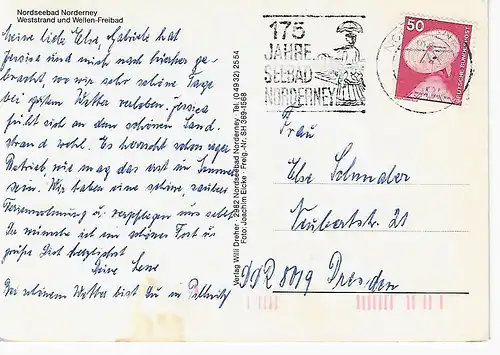 Nordseebad Norderney
Weststrand und Wellen-Freibad
Meine liebe Else, Gabriele hat
Jessica und mich nach hierher ge-
bracht, wo wir sehr schöne Tage
bei gutem Wetter verleben. Jessica
fühlt sich an dem schönen Sand-
strand wohl. Es herrscht schon reger
Betrieb, wie mag das erst im Sommer
sein. Wir haben eine schöne, saubere
Ferienwohnung u. verpflegen uns selbst.
Dir wünsche ich ein schönes Fest u.
grüße Dich herzlichst
Deine Lene
Bei schönem Wetter bist Du in Pillnitz
Verlag Willi Dreher · 2982 Nordseebad Norderney · Tel. (0 49 32) 25 54
Foto: Joachim Eicke · Freig.-Nr. SH 369-1568
175
JAHRE
SEEBAD
NORDERNEY
50
DEUTSCHE BUNDESPOST
Frau
Else
Neubertstr. 21
DDR 8019 Dresden